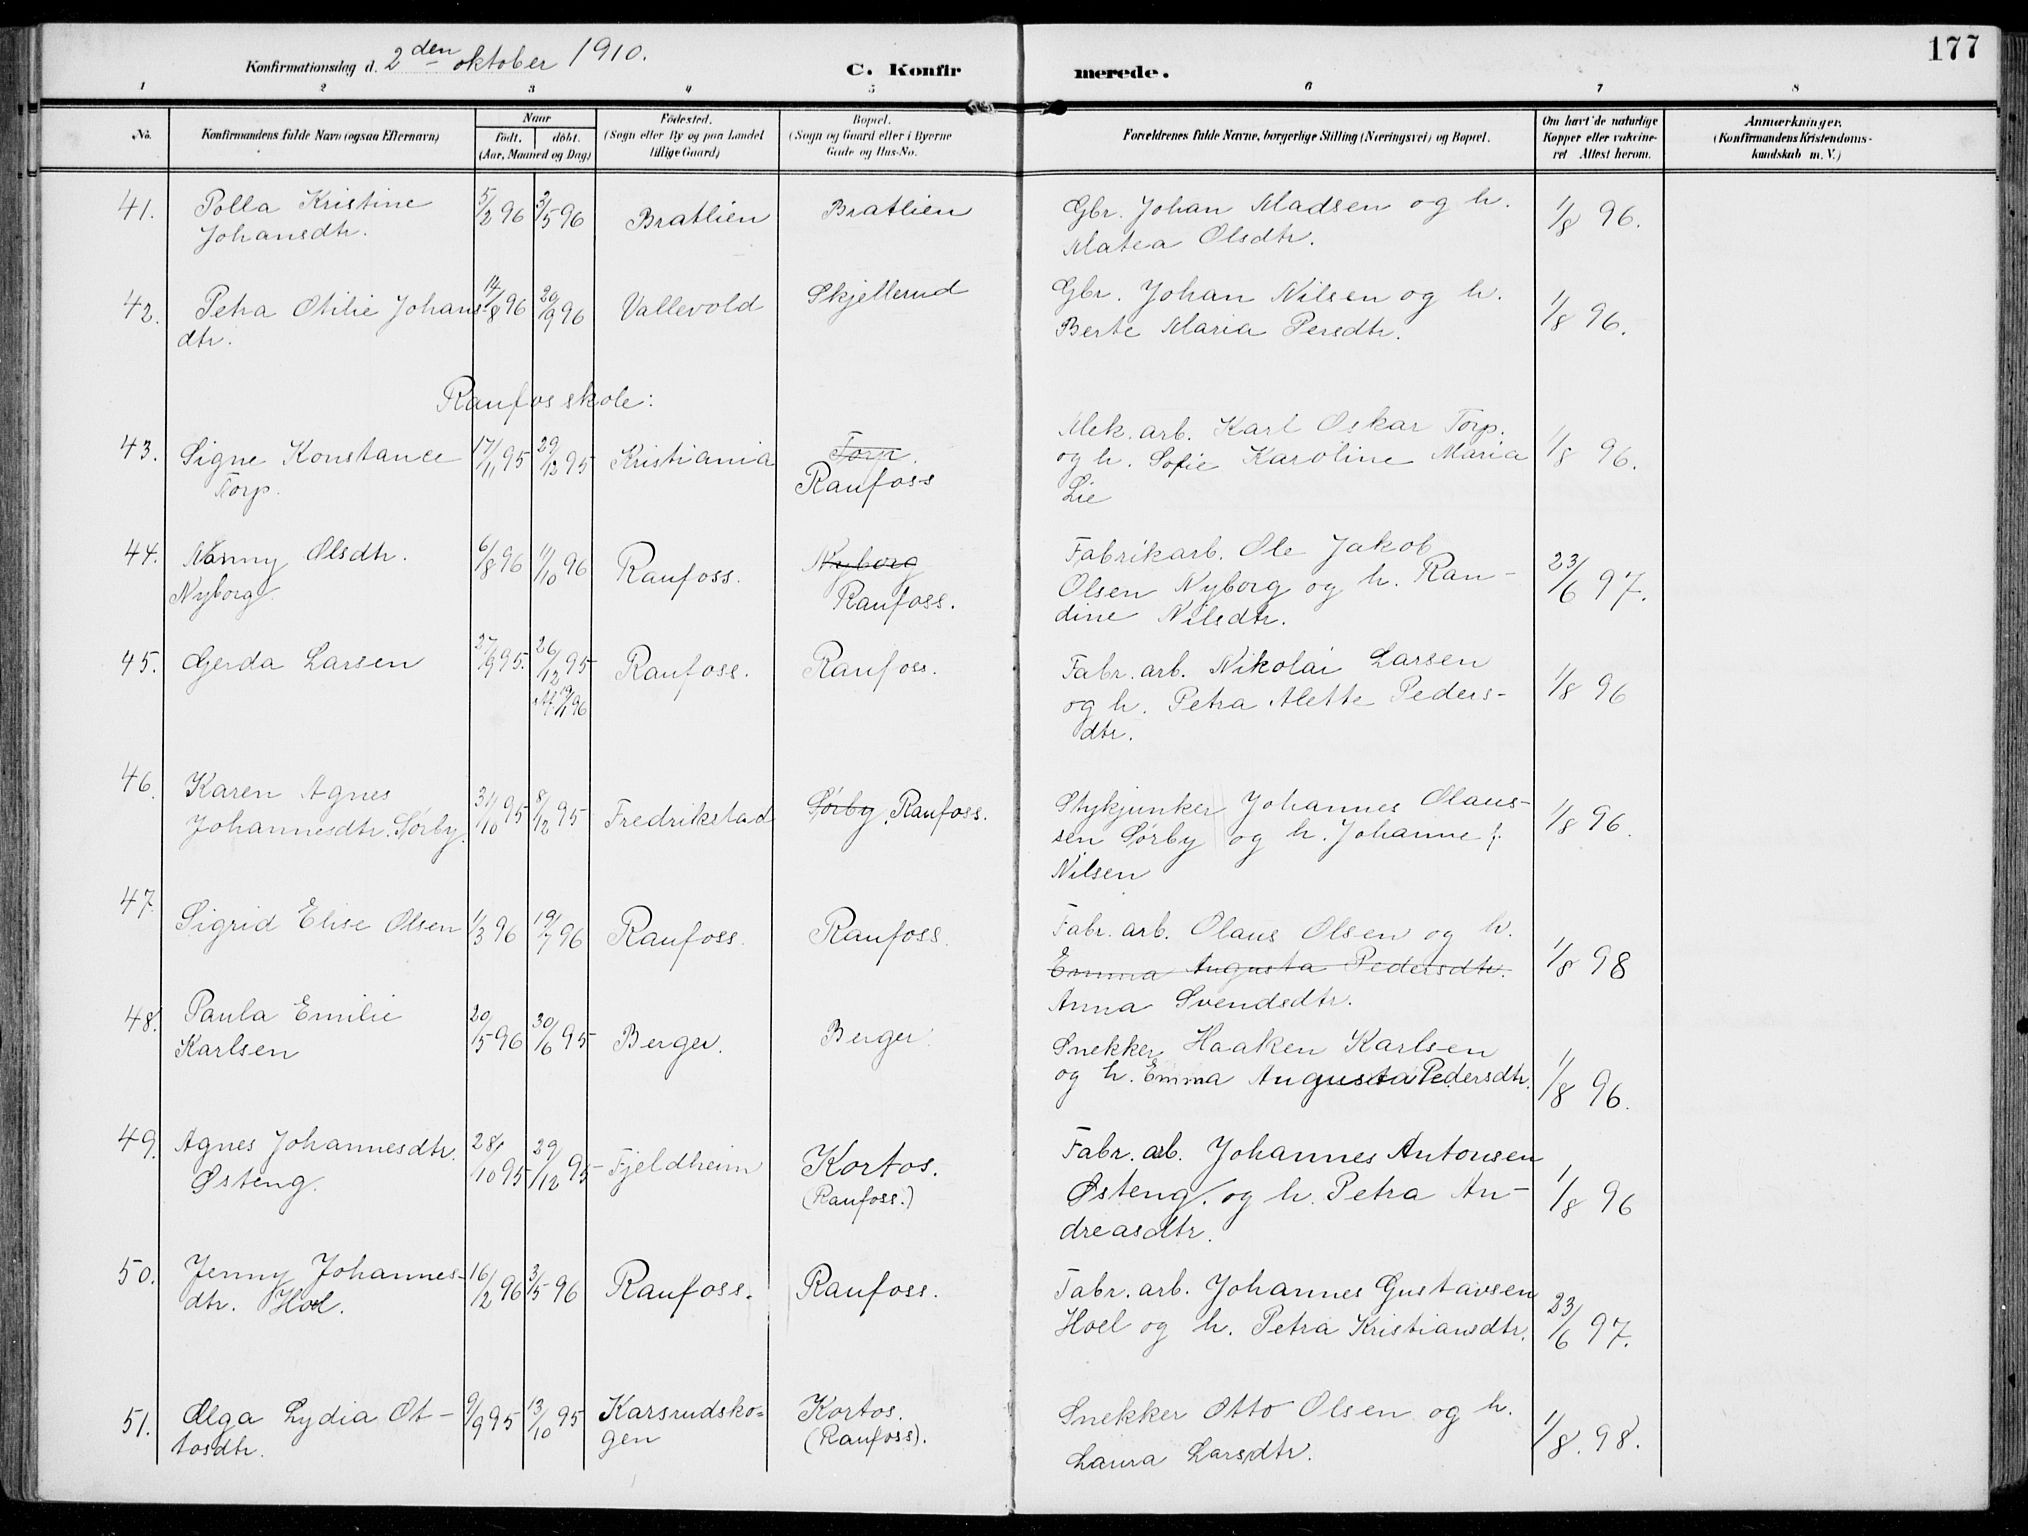 Konfirmationsdag d. 2den oktober 1910.
C. Konfirmerede.
177
1 2 3 4 5 6 7 8
No.
Konfirmandens fulde Navn (ogsaa Efternavn)
Naar
födt. döbt.
(Aar, Maaned og Dag)
Födested.
(Sogn eller By og paa Landet
tillige Gaard)
Bopæl.
(Sogn og Gaard eller i Byerne
Gade og Hus-No.
Forældrenes fulde Navne, borgerlige Stilling (Næringsvei) og Bopæl.
Om havt de naturlige
Kopper eller vakcine-
ret Attest herom.
Anmærkninger.
(Konfirmandens Kristendoms-
kundskab m. V.)
41. Polla Kristine 5/2 96 3/5 96 Bratlien Bratlien Gbr. Johan Madsen og h. 1/8 96.
Johansdtr. Matea Olsdtr.
42. Petra Otilie Johans 14/8 96 20/9 96 Vallevold Skjellerud Gbr. Johan Nilsen og h. 1/8 96.
dtr. Berte Maria Persdtr.
Raufos skole:
43. Signe Konstance 17/11 95 29/12 95 Kristiania Torp. Mek. arb. Karl Oskar Torp. 1/8 96.
Torp. Raufoss og h. Sofie Karoline Maria
Lie
44. Nanny Olsdtr. 6/8 96 11/10 96 Raufoss. Nyborg Fabrikarb. Ole Jakob 23/6 97.
Nyborg. Raufoss. Olsen Nyborg og h. Ran-
dine Nilsdtr.
45. Gerda Larsen 27/9 95. 26/12 95 Raufoss. Raufoss. Fabr. arb. Nikolai Larsen 1/8 96
19/4 96 og h. Petra Mette Peders-
dtr.
46. Karen Agnes 31/10 95 8/12 95 Fredrikstad Sørby, Raufoss. Stykjunker Johannes Olaus- 1/8 96.
Johannesdtr. Sørby. sen Sørby og h. Johanne f.
Nilsen
47. Sigrid Elise Olsen 1/3 96 19/7 96 Raufoss. Raufoss. Fabr. arb. Olaus Olsen og h. 1/8 98
Emma Augusta Pedersdtr.
Anna Svendsdtr.
48. Paula Emilie 20/5 96 30/6 95 Berger. Berger. Snekker Haaken Karlsen 1/8 96.
Karlsen og h. Emma Augusta Pedersdtr.
49. Agnes Johannesdtr. 28/10 95 29/12 95 Fjeldheim Kortos. Fabr. arb. Johannes Antonsen 1/8 96
Østeng. (Raufoss.) Østeng. og h. Petra An-
dreasdtr.
50. Jenny Johannes- 16/2 96 3/5 96 Raufoss. Raufoss. Fabr. arb. Johannes Gustavsen 23/6 97.
dtr. Hoel. Hoel og h. Petra Kristiansdtr.
51. Olga Lydia Ot- 9/9 95 13/10 95 Karsrudsko= Kortos. Snekker Otto Olsen og h. 1/8. 98.
tosdtr. gen (Raufoss). Laura Larsdtr.